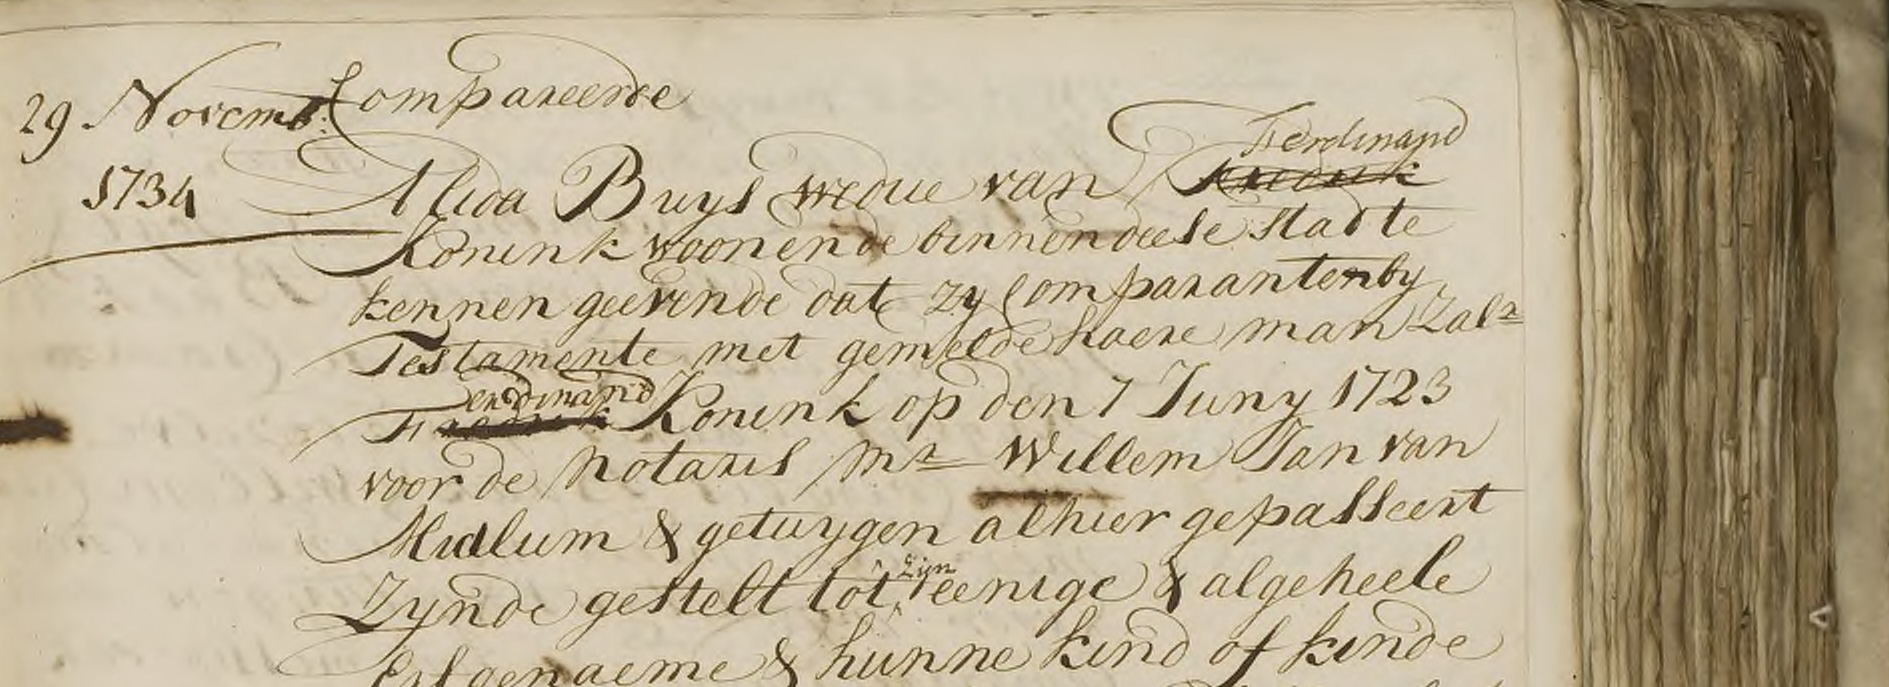 29 Novemb:
1734
Compareerde
Ferdinand
Alida Buys wedue van Fredrik
Konink woonende binnen deese stadt te
kennen geevende dat zy Comparanten by
Testamente met gemelde haere man Zalr
erdinand
Fredrik Konink op den 7 Juny 1723
voor de Notaris Mr Willem Jan van
Midlum & getuygen alhier gepasseert
zyn
Zynde gestelt tot eenige & algeheele
Erfgenaeme & hunne kind of kinde